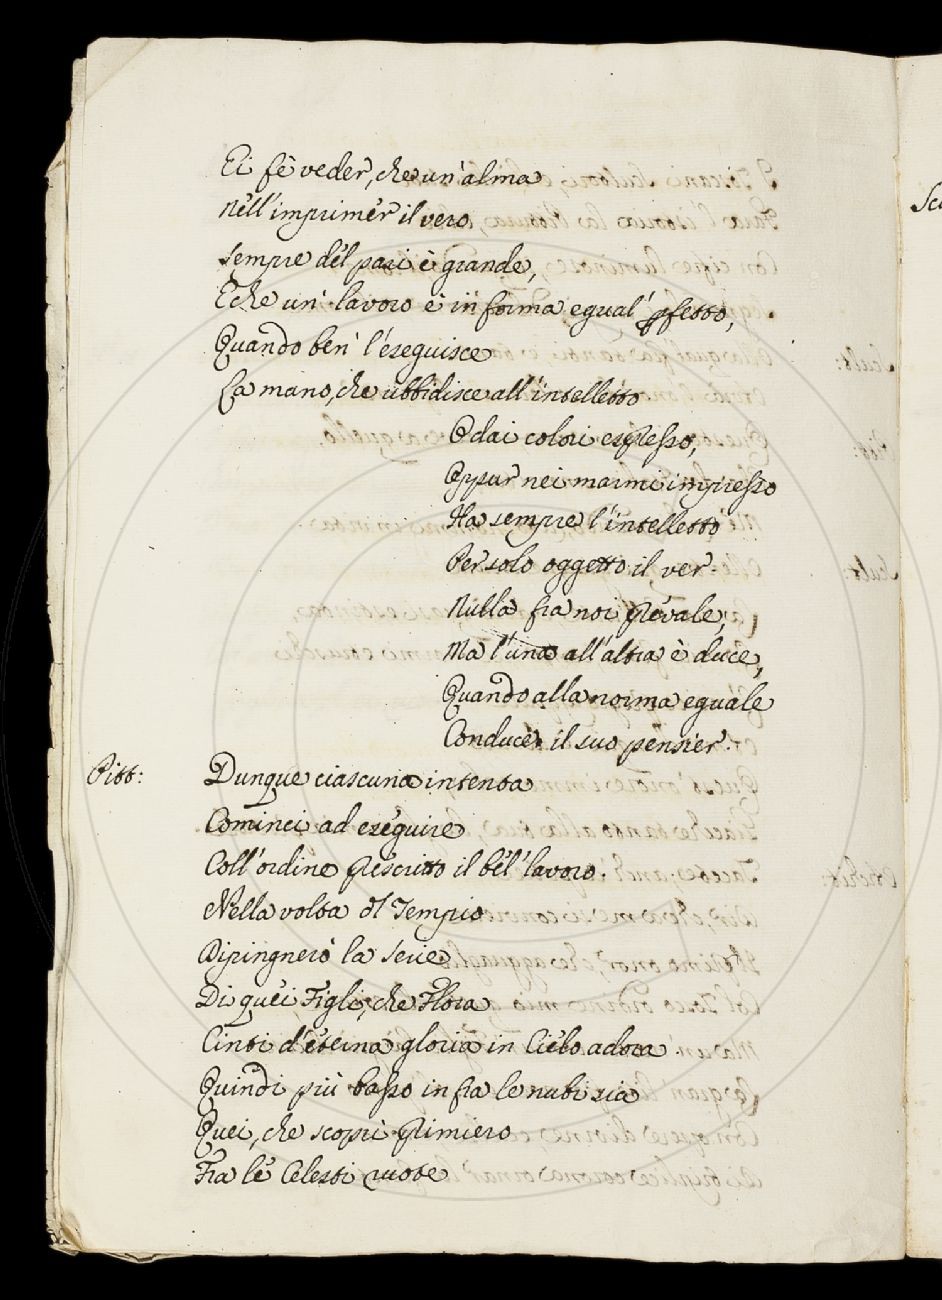 Ei fè veder, che un'alma
Nell'imprimer il vero,
Sempre del pari è grande,
E che un' lavoro è in forma egual' pfetto,
Quando ben' l'eseguisce
La mano, che ubbidisce all'intelletto
O dai colori espresso,
Oppur nei marmi impresso
Ha sempre l'intelletto
Per solo oggetto il ver.
Nulla fra noi prevale;
Ma l'una all'altra è duce,
Quando alla norma eguale
Conduce il suo pensier.
Pitt: Dunque ciascuna intenta
Cominci ad eseguire
Coll'ordine prescritto il bel' lavoro.
Nella volta dl Tempio
Dipingnerò la serie
Di quei Figli, che Flora
Cinti d'eterna gloria in Cielo adora
Quindi più basso infra le nubi sia
Quei, che scoprì primiero
Fra le Celesti ruote